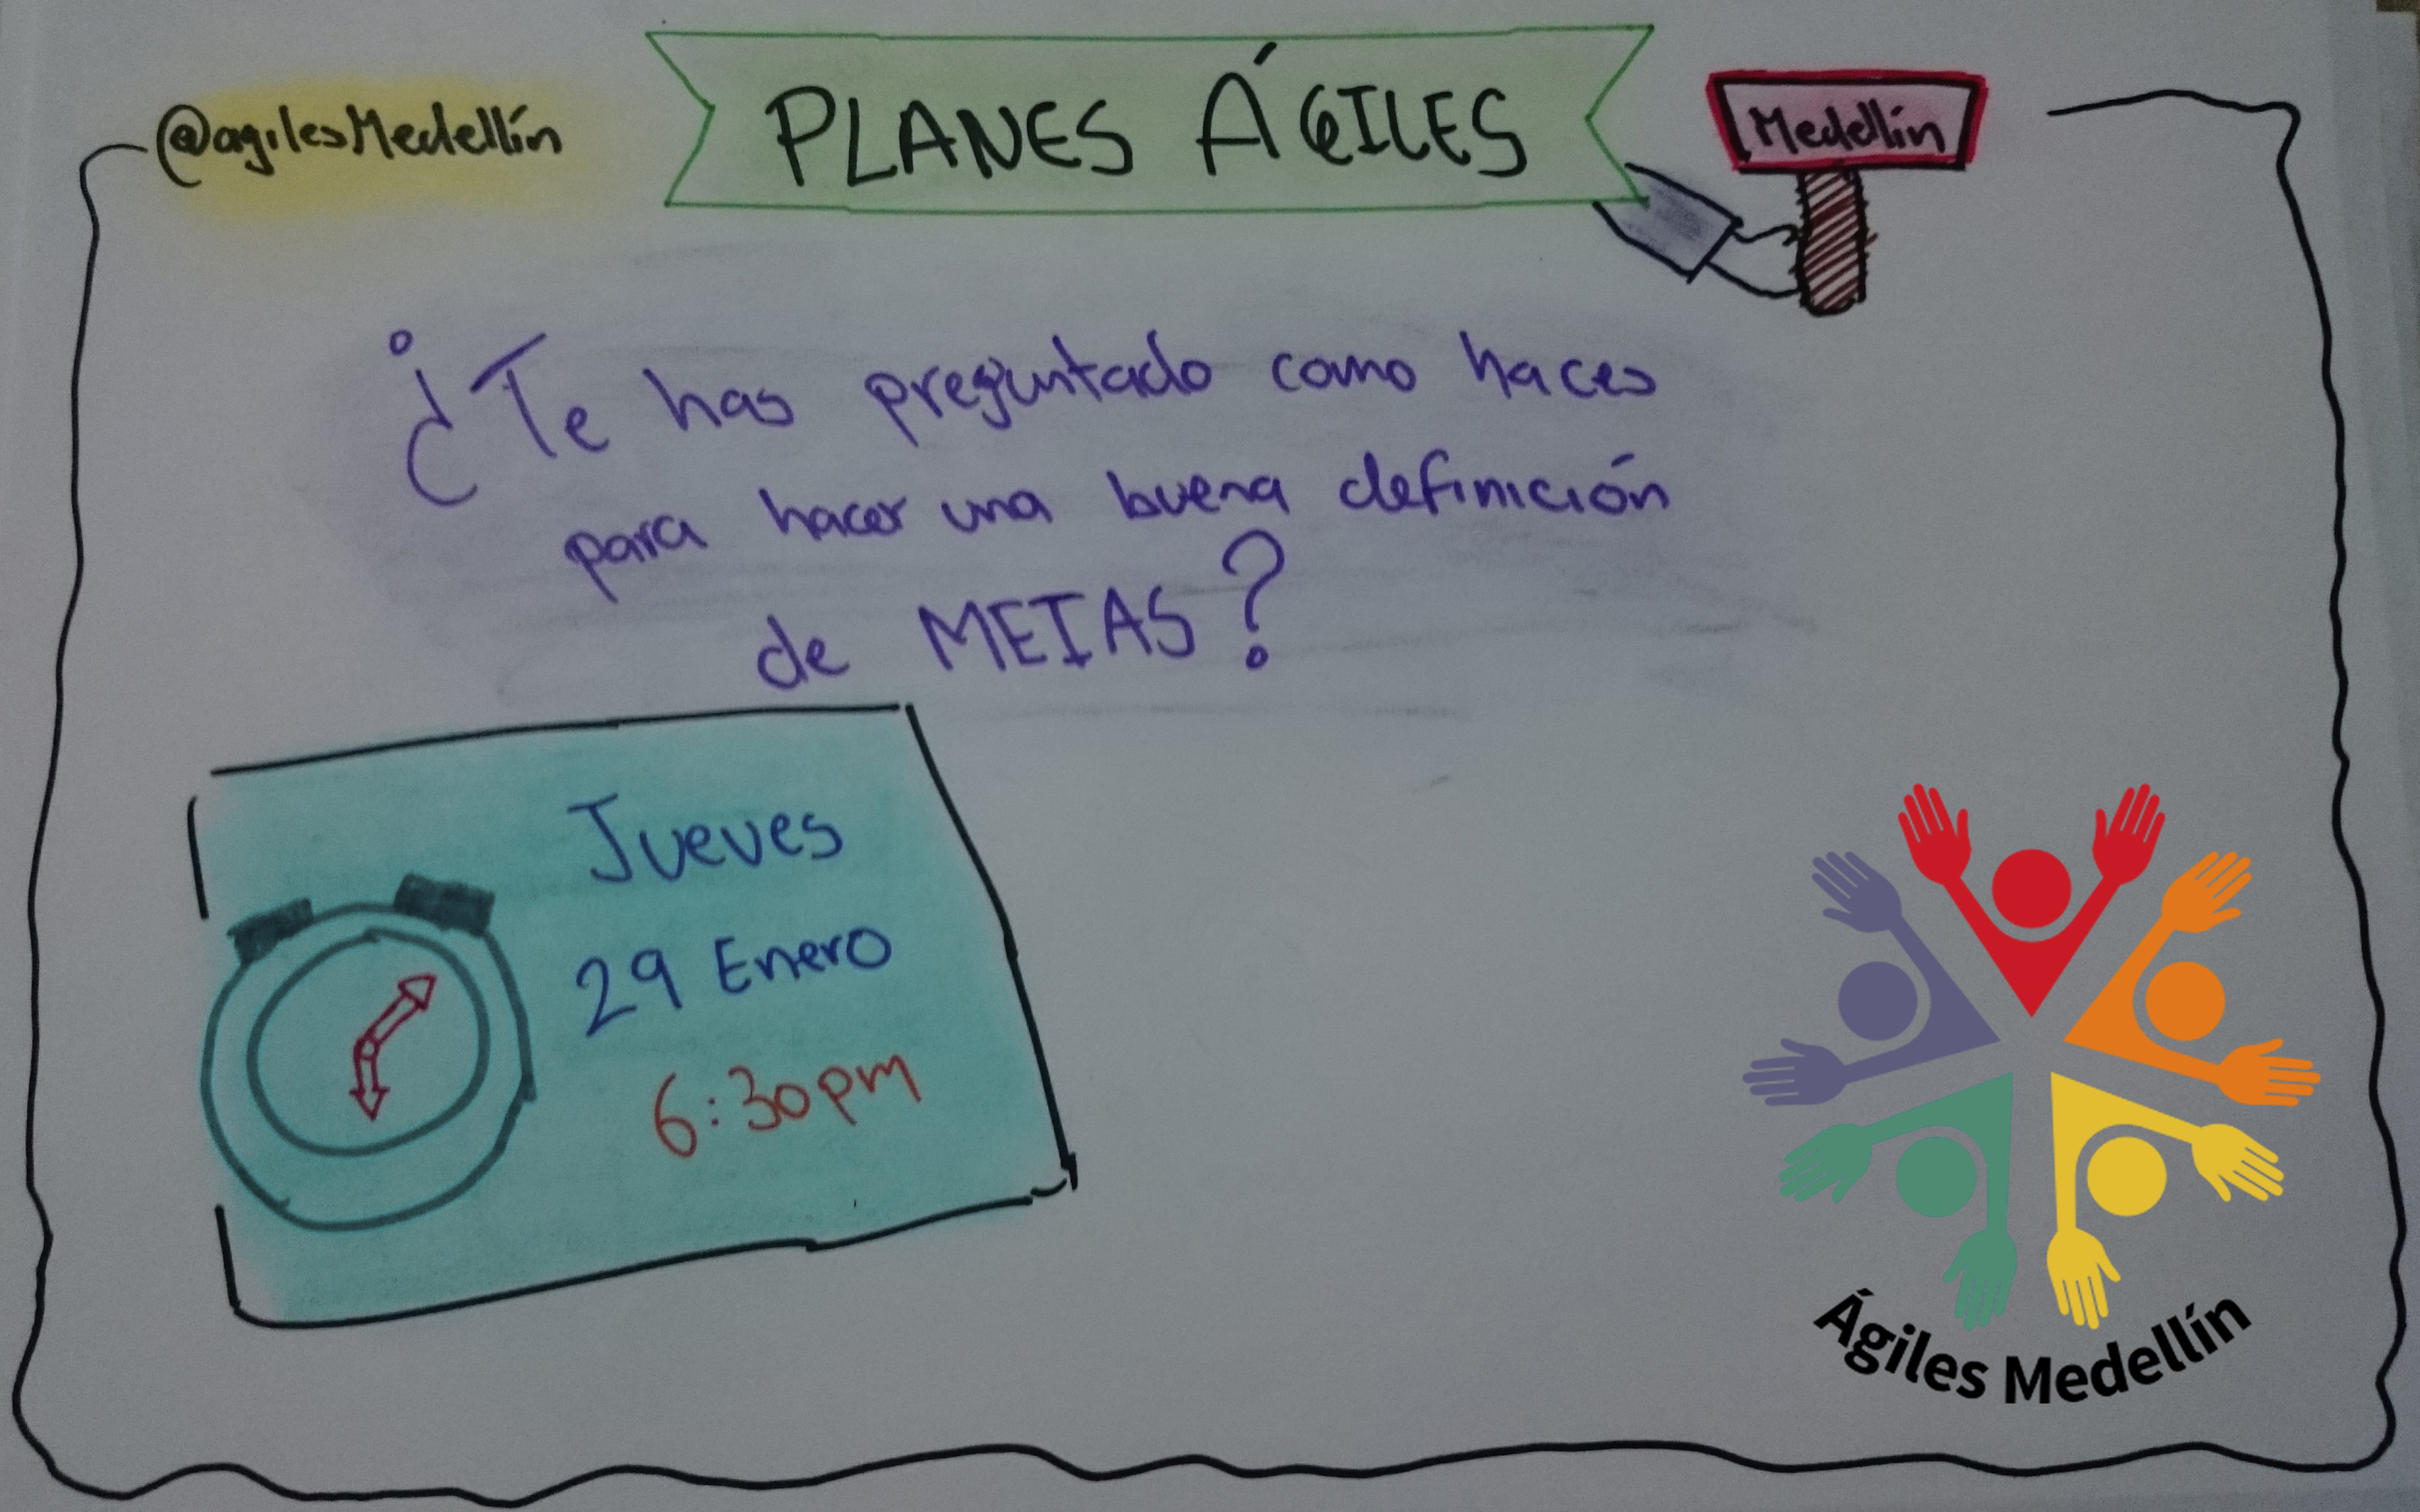 @agilesMedellín
PLANES ÁGILES
Medellín
¿Te has preguntado como haces
para hacer una buena definición
de METAS?
Jueves
29 Enero
6:30pm
Ágiles Medellín